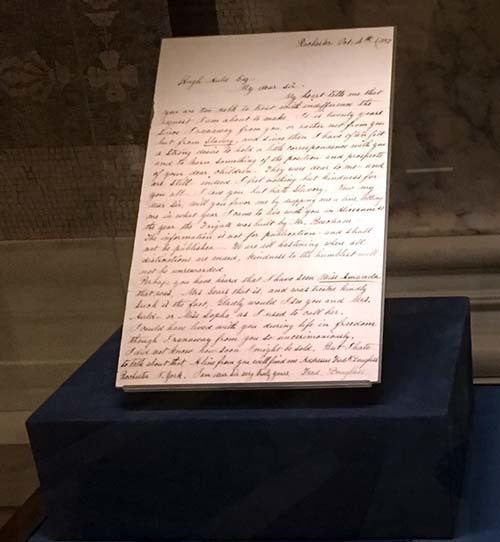 Rochester Oct. 4th 1857
Hugh Auld Esq.
My dear sir.
My heart tells me that
you are too noble to treat with indifference the
request I am about to make. It is twenty years
since I ranaway from you, or rather not from you
but from Slavery, and since then I have often felt
a strong desire to hold a little correspondence with you
and to learn something of the position and prospects
of your dear children. They were dear to me - and
are still - indeed I feel nothing but kindness for
you all - I love you, but hate Slavery. Now my
dear Sir, will you favor me by dropping me a line, telling
me in what year I came to live with you in
the year the Frigate was built by Mr.
The information is not for publication - and shall
not be published. We are all hastening where all
distinctions are ended, kindness to the humblest will
not be unrewarded.
Perhaps you have heard that I have seen Miss Amanda
that was, Mrs Sears that is, and was treated kindly
Such is the fact, Gladly would I see you and Mrs.
Auld - or Miss Sopha as I used to call her.
I could have lived with you during life in freedom
though I ranaway from you so unceremoniously,
I did not know how soon I might be sold. But I hate
to talk about that. A line from you will find me Addressed Fredk Douglass
Rochester N. York. I am dear sir very truly yours. Fred: Douglass